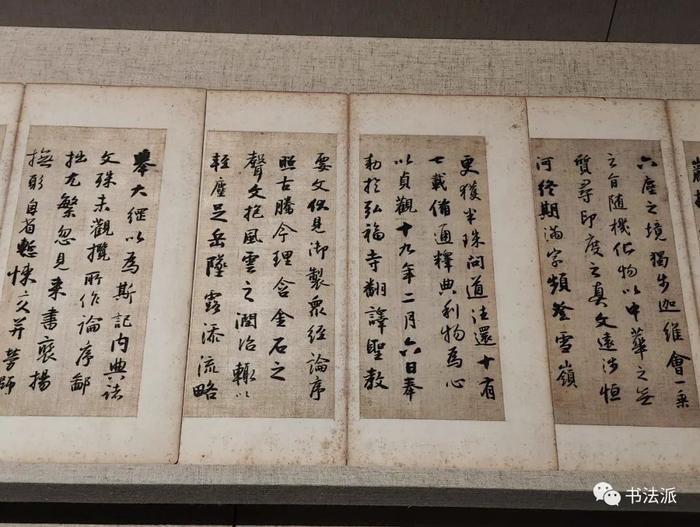 六塵之境獨步迦維會一乘
之旨隨機化物以中華之無
質尋印度之真文遠涉恒
河終期滿字頻登雪嶺
更獲半珠問道往還十有
七載備通釋典利物為心
以貞觀十九年二月六日奉
勅於弘福寺翻譯聖教
要文伏見御製眾經論序
照古騰今理含金石之
聲文抱風雲之潤治輒以
輕塵足岳墜露添流略
舉大綱以為斯記内典諸
文殊未觀攬所作論序鄙
拙尤繁忽見来書褒揚
撫躬自省慙悚交并勞師
书法派